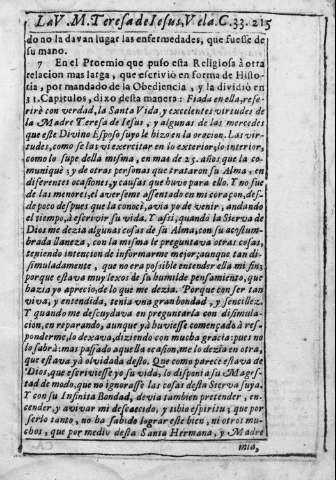 La V. M. Teresa de Iesus, Vela. C. 33. 215
do no la davan lugar las enfermedades, que fuesse de
su mano.
7 En el Proemio que puso esta Religiosa à otra
relacion mas larga, que escriviò en forma de Histo-
ria, por mandado de la Obediencia, y la dividiò en
31. Capitulos, dixo desta manera: Fiada en ella, refe-
rirè con verdad, la Santa Vida, y excelentes virtudes de
la Madre Teresa de Iesus, y algunas de las mercedes
que este Divino Esposo suyo le hizo en la oracion. Las vir-
tudes, como se las vi exercitar en lo exterior; lo interior,
como lo supe della misma, en mas de 25. años que la co-
muniquè; y de otras personas que trataron su Alma, en
diferentes ocasiones, y causas que huvo para ello. Y no fue
de las menores, el averseme assentado en mi coraçon, des-
de poco despues que la conocì, avia yo de venir, andando
el tiempo, à escrivir su vida. Y assi, quando la Sierva de
Dios me dezia algunas cosas de su Alma, con su acostum-
brada llaneza, con la misma le preguntava otras cosas,
teniendo intencion de informarme mejor, aunque tan di-
simuladamente, que no era possible entender ella mi fin;
porque estava muy lexos de su humilde pensamiento, que
hazia yo aprecio, de lo que me dezia. Porque con ser tan
viva, y entendida, tenia una gran bondad, y sencillez.
Y quando me descuydava en preguntarla con disimula-
cion, en reparando, aunque yà huviesse começado à res-
ponderme, lo dexava, diziendo con mucha gracia: pues no
lo sabrà: mas passado aquella ocasion, me lo dezia en otra,
que estava yà olvidada desto. Que como parece estava de
Dios, que escriviesse yo su vida, lo disponia su Mages-
tad de modo, que no ignorasse las cosas desta Sierva suya.
Y con su Infinita Bondad, devia tambien pretender, en-
cender, y avivar mi descaecido, y tibio espiritu; que por
serlo tanto, no ha sabido lograr este bien, ni otros mu-
chos, que por medio desta Santa Hermana, y Madre
mia,